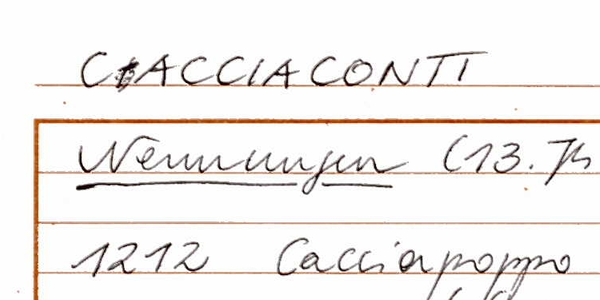 CACCIACONTI
Nennungen (13. Jh
1212 Cacciapoppo